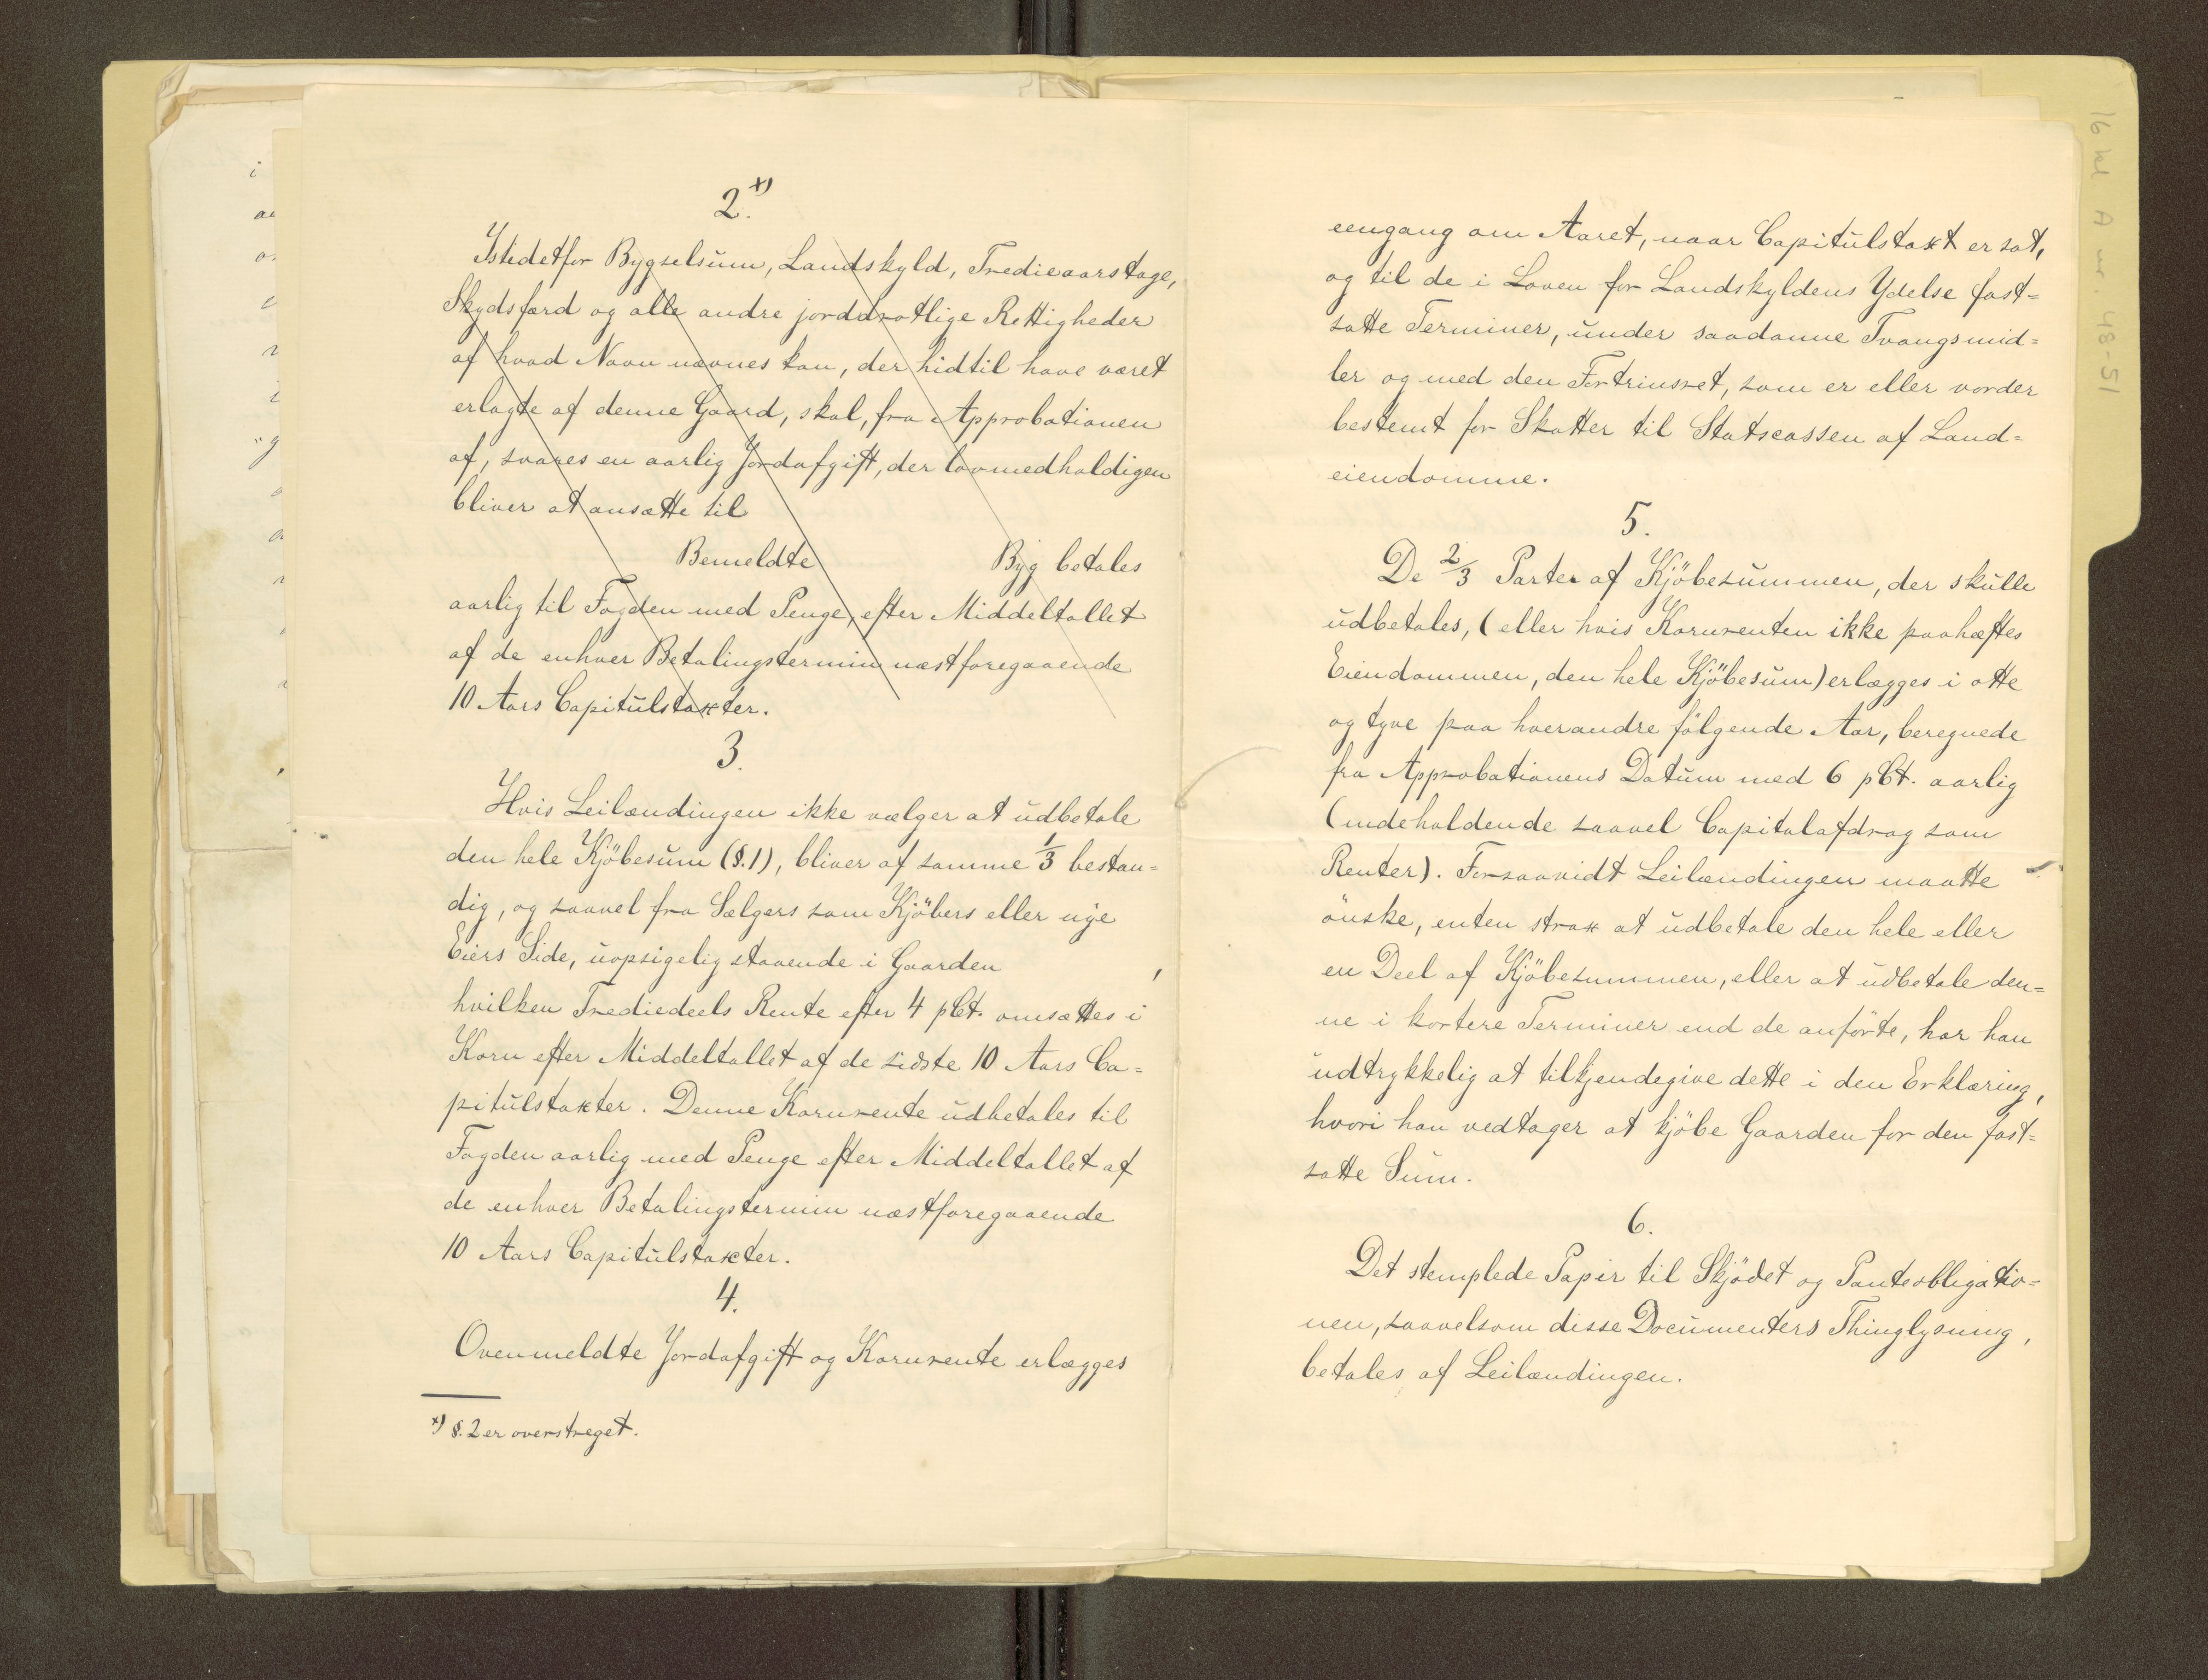 2.
x)
Istedetfor Bygselsum, Landskyld, Trediaarstage,
Skydsfærd og alle andre jorddrotlige Rettigheder
af hvad Navn nævnes kan, der hidtil have været
erlagte af denne Gaard, skal, fra Approbationen
af, svares en aarlig Jordafgift, der lovmedholdigen
bliver at ansætte til
Bemeldte Byg betales
aarlig til Fogden med Penge efter Middeltallet
af de enhver Betalingstermin næstforegaaende
10 Aars Capitulstaxter.
3.
Hvis Leilændingen ikke vælger at udbetale
den hele Kjöbesum (§.1), bliver af samme 1/3 bestan=
dig, og saavel fra Sælgers som Kjöbers eller nye
Eiers Side, uopsigelig staaende i Gaarden ,
hvilken Trediedeels Rente efter 4 pCt. omsættes i
Korn efter Middeltallet af de sidste 10 Aars Ca=
pitulstaxter. Denne Kornrente udbetales til
Fogden aarlig med Penge efter Middeltallet af
de enhver Betalingstermin næstforegaaende
10 Aars Capitulstaxter.
4.
Ovenmeldte Jordafgift og Kornrente erlægges
x) §. 2 er overstreget.
eengang om Aaret, naar Capitulstaxt er sat,
og til de i Loven for Landskyldens Ydelse fast=
satte Terminer, under saadanne Tvangsmid=
ler og med den Fortrinsret, som er eller vorder
bestemt for Skatter til Statscassen af Land=
eiendomme.
5.
De 2/3 Parter af Kjöbesummen, der skulle
udbetales, (eller hvis Kornrenten ikke paahæftes
Eiendommen, den hele Kjöbesum) erlægges i otte
og tyve paa hverandre fölgende Aar, beregnede
fra Approbationens Datum med 6 pCt. aarlig
(indeholdende saavel Capitalafdrag som
Renter). Forsaavidt Leilændingen maatte
önske, enten strax at udbetale den hele eller
en Deel af Kjöbesummen, eller at udbetale den=
ne i kortere Terminer end de anförte, har han
udtrykkelig at tilkjendegive dette i den Erklæring,
hvori han vedtager at kjöbe Gaarden for den fast=
satte Sum.
6.
Det stemplede Papir til Skjödet og Panteobligatio=
nen, saavelsom disse Documenters Thinglysning,
betales af Leilændingen.
16 kl A nr. 48-51